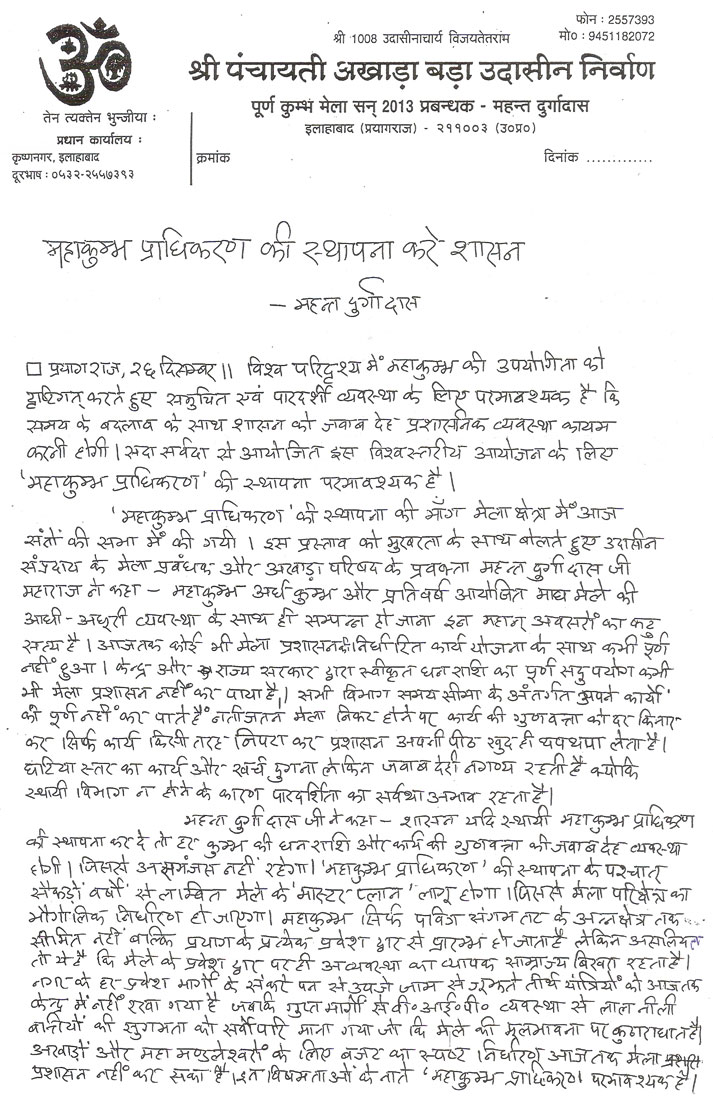 श्री 1008 उदासीनाचार्य विजयतेतराम
फोन : 2557393
मो० : 9451182072
श्री पंचायती अखाड़ा बड़ा उदासीन निर्वाण
पूर्ण कुम्भ मेला सन् 2013 प्रबन्धक - महन्त दुर्गादास
इलाहाबाद (प्रयागराज) - २११००३ (उ०प्र०)
तेन त्यक्तेन भुन्जीया :
प्रधान कार्यालय :
कृष्णनगर, इलाहाबाद
दूरभाष : ०५३२-२५५७३९३
क्रमांक
दिनांक .............
महाकुम्भ प्राधिकरण की स्थापना करे शासन
- महन्त दुर्गादास
□ प्रयागराज, २६ दिसम्बर।। विश्व परिदृश्य में महाकुम्भ की उपयोगिता को
दृष्टिगत् करते हुए समुचित एवं पारदर्शी व्यवस्था के लिए परमावश्यक है कि
समय के बदलाव के साथ शासन को जवाब देह प्रशासनिक व्यवस्था कायम
करनी होगी। सदा सर्वदा से आयोजित इस विश्वस्तरीय आयोजन के लिए
'महाकुम्भ प्राधिकरण' की स्थापना परमावश्यक है।
'महाकुम्भ प्राधिकरण' की स्थापना की माँग मेला क्षेत्र में आज
संतों की सभा में की गयी। इस प्रस्ताव को मुखरता के साथ बोलते हुए उदासीन
संप्रदाय के मेला प्रबंधक और अखाड़ा परिषद के प्रवक्ता महन्त दुर्गादास जी
महाराज ने कहा - महाकुम्भ अर्धकुम्भ और प्रतिवर्ष आयोजित माघ मेले की
आधी-अधूरी व्यवस्था के साथ ही सम्पन्न हो जाना इन महान् अवसरों का कटु
सत्य है। आजतक कोई भी मेला प्रशासन के निर्धारित कार्य योजना के साथ कभी पूर्ण
नहीं हुआ। केन्द्र और राज्य सरकार द्वारा स्वीकृत धनराशि का पूर्ण सदुपयोग कभी
भी मेला प्रशासन नहीं कर पाया है। सभी विभाग समय सीमा के अंतर्गत अपने कार्यों
को पूर्ण नहीं कर पाते हैं नतीजतन मेला निकट होने पर कार्य की गुणवत्ता को दर किनार
कर सिर्फ कार्य किसी तरह निपटा कर प्रशासन अपनी पीठ खुद ही थपथपा लेता है।
घटिया स्तर का कार्य और खर्च दुगना लेकिन जवाब देही नगण्य रहती है क्योंकि
स्थायी विभाग न होने के कारण पारदर्शिता का सर्वथा अभाव रहता है।
महन्त दुर्गादास जी ने कहा - शासन यदि स्थायी महाकुम्भ प्राधिकरण
की स्थापना कर दे तो हर कुम्भ की धनराशि और कार्य की गुणवत्ता की जवाब देह व्यवस्था
होगी। जिससे असमंजस नहीं रहेगा। 'महाकुम्भ प्राधिकरण' की स्थापना के पश्चात्
सैकड़ों वर्षों से लम्बित मेले के 'मास्टर प्लान' लागू होगा। जिससे मेला परिक्षेत्र का
भौगोलिक निर्धारण हो जाएगा। महाकुम्भ सिर्फ पवित्र संगम तट के क्षेत्र तक
सीमित नहीं बल्कि प्रयाग के प्रत्येक प्रवेश द्वार से प्रारम्भ हो जाता है लेकिन असलियत
तो ये है कि मेले के प्रवेश द्वार पर ही अव्यवस्था का व्यापक साम्राज्य बिखरा रहता है।
नगर के हर प्रवेश मार्गों के संकरे पन से उपजे जाम से जूझते तीर्थ यात्रियों को आजतक
केन्द्र में नहीं रखा गया है जबकि गुप्त मार्गों से वी०आई०पी० व्यवस्था से लाल नीली
बत्तियों की सुगमता को सर्वोपरि माना गया जो कि मेले की मूलभावना पर कुठाराघात है।
अखाड़ों और महामण्डलेश्वरों के लिए बजट का स्पष्ट निर्धारण आजतक मेला
प्रशासन नहीं कर सका है। इन विषमताओं के नाते 'महाकुम्भ प्राधिकरण' परमावश्यक है।